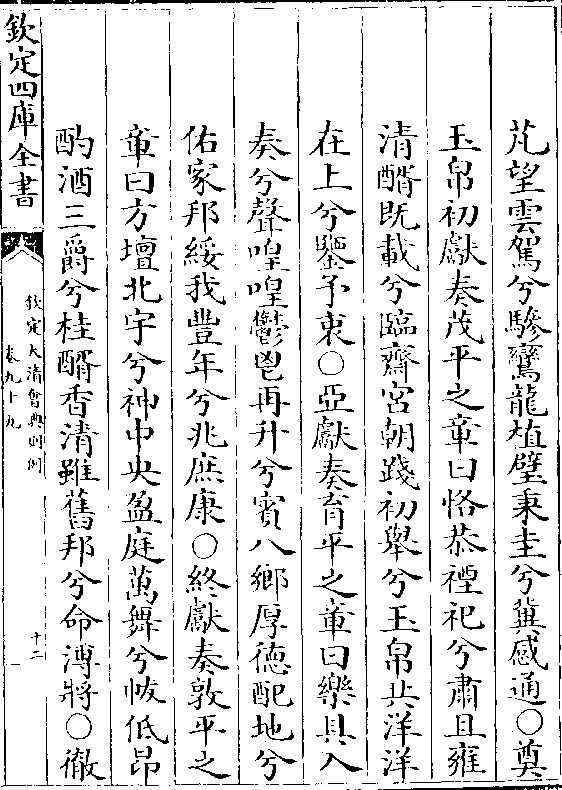 芃望雲駕兮驂鸞龍植璧秉圭兮冀感通○奠
玉帛初獻奏茂平之章曰恪恭禋祀兮肅且雍
清醑既載兮臨齋宮朝踐初舉兮玉帛共洋洋
在上兮鑒予衷○亞獻奏育平之章曰樂具入
奏兮聲喤喤鬱鬯再升兮賓八鄉厚德配地兮
佑家邦綏我豐年兮兆庶康○終獻奏敦平之
章曰方壇北宇兮神中央盈庭萬舞兮帗低昂
酌酒三爵兮桂醑香清雖舊邦兮命溥將○徹
欽定四庫全書
欽定大清會典則例
卷九十九
十二